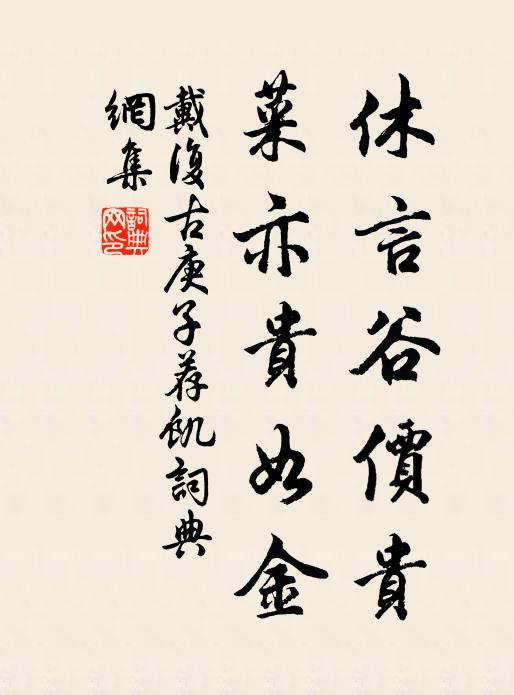 休言谷價貴
菜亦貴如金
戴復古庚子荐飢詞典
網集
詞典网印